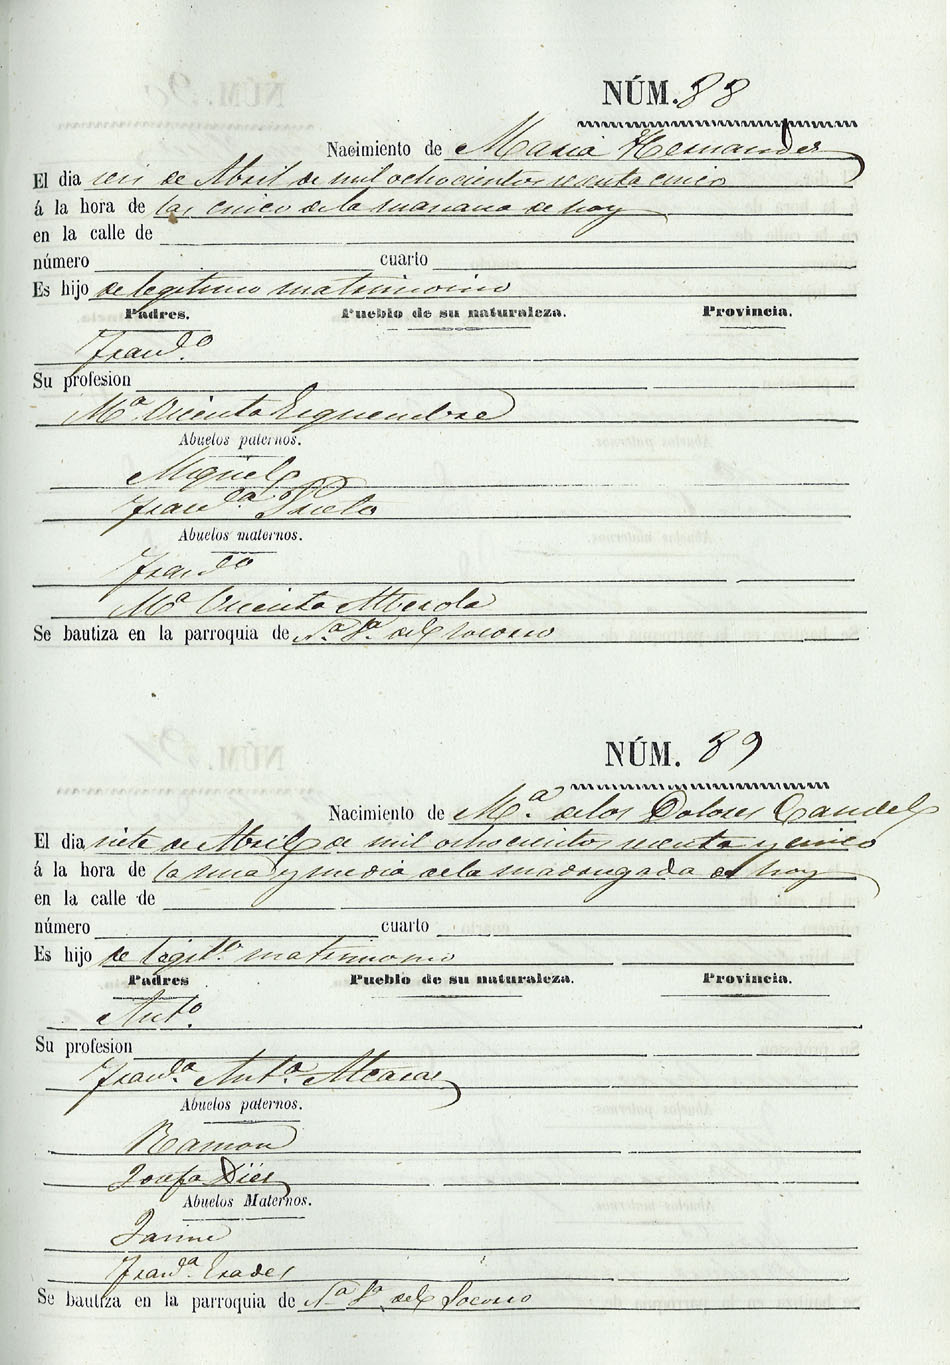 NÚM. 88
Nacimiento de Maria Hernandes
El dia seis de Abril de mil ochocientos sesenta cinco
á la hora de las cinco de la mañana de hoy
en la calle de
número cuarto
Es hijo de legitimo matrimonio
Padres. Pueblo de su naturaleza. Provincia.
Franco
Su profesion
Mª Vicenta Esquembre
Abuelos paternos.
Miguel
Franca
Abuelos maternos.
Franco
Mª Vicenta Alberola
Se bautiza en la parroquia de Nª Sª del Socorro
NÚM. 89
Nacimiento de Mª de los Dolores Candel
El dia siete de Abril de mil ochocientos sesenta y cinco
á la hora de la una y media de la madrugada de hoy
en la calle de
número cuarto
Es hijo de legitº matrimonio
Padres Pueblo de su naturaleza. Provincia.
Antº
Su profesion
Francª Antª Alcaras
Abuelos paternos.
Ramon
Josefa Dies
Abuelos Maternos.
Jaime
Francª
Se bautiza en la parroquia de Nª Sª del Socorro